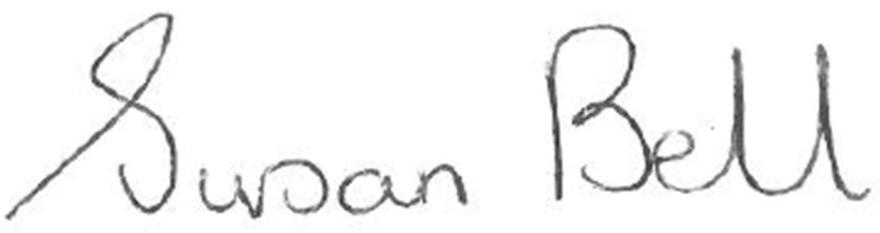 Susan Bell